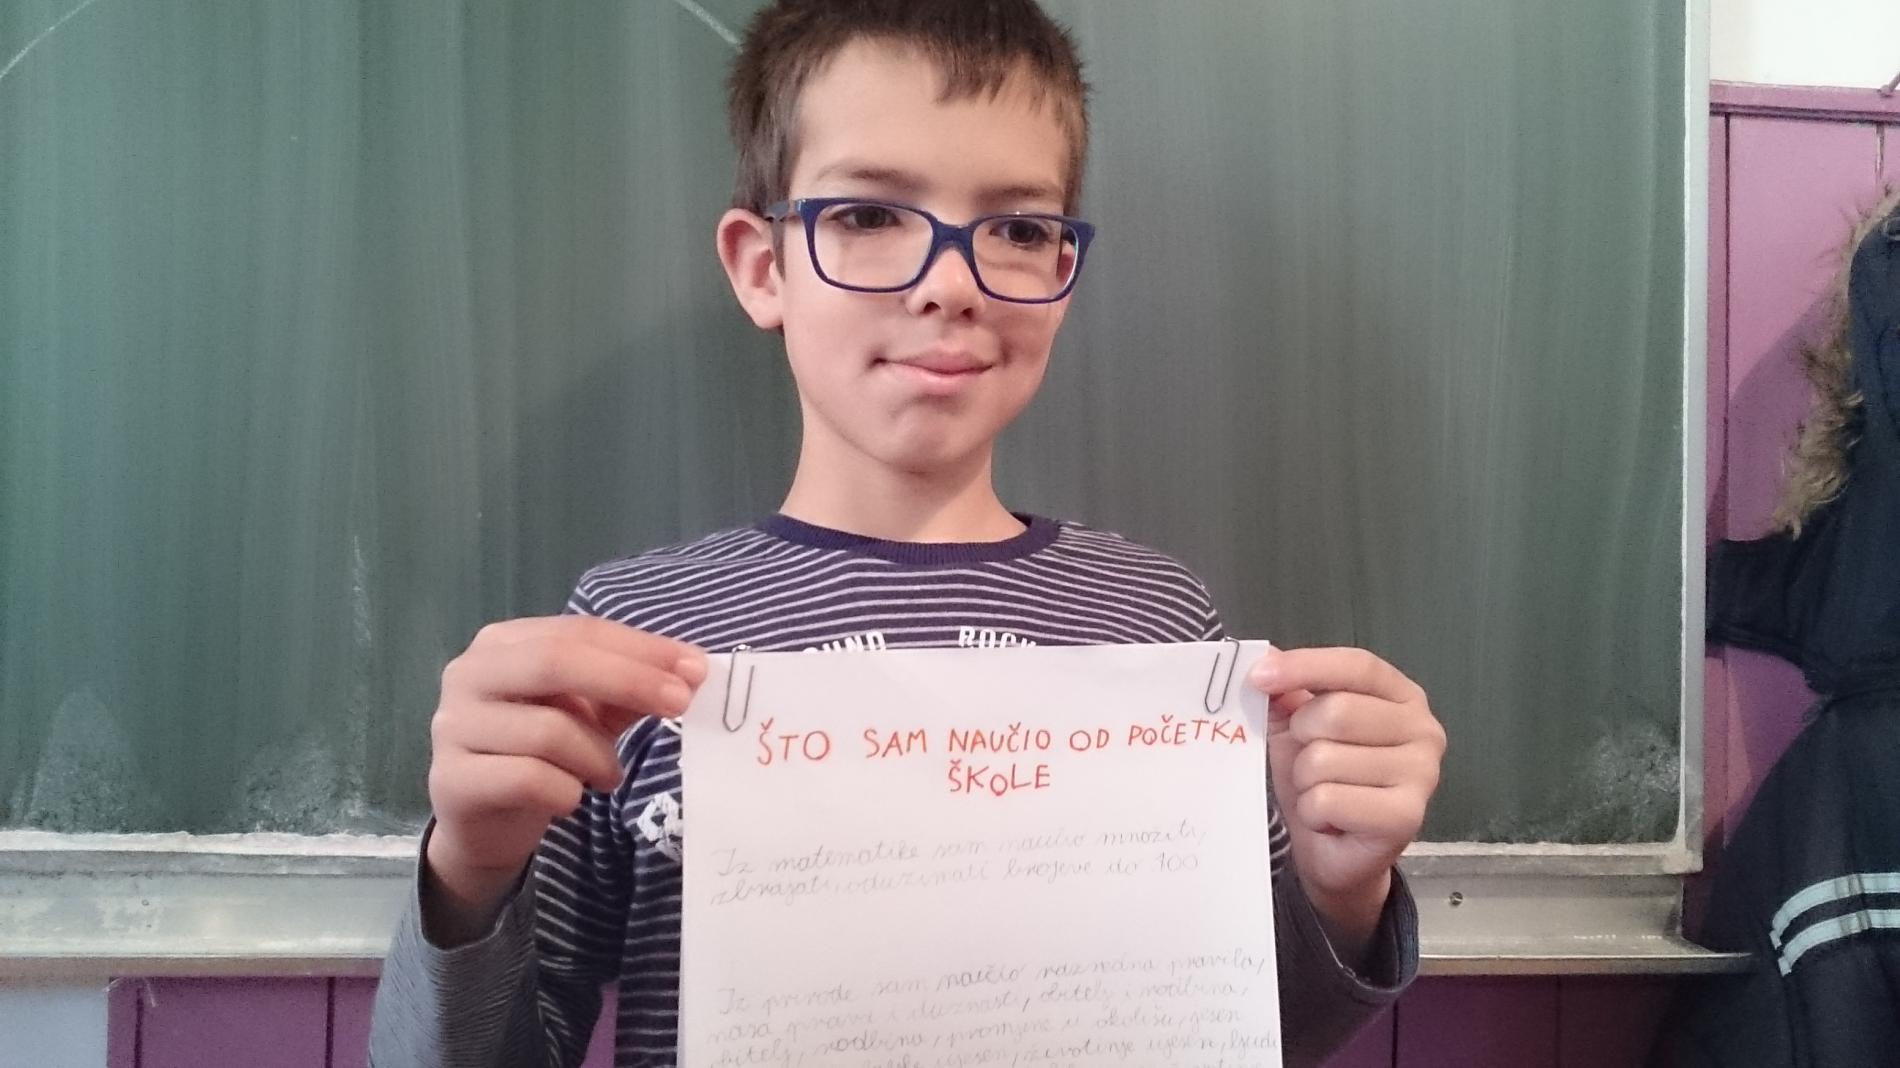 OUND ROCK
ŠTO SAM NAUČIO OD POČETKA
ŠKOLE
Iz matematike sam naučio mnoziti,
zbrajati, oduzimati brojeve do 100
Iz prirode sam naučio razredna pravila,
nasa prava i duznosti, obitelj i rodbina,
obitelj, rodbina, promjene u okolišu, jesen
ujesen, životinje ujesen, ljudi